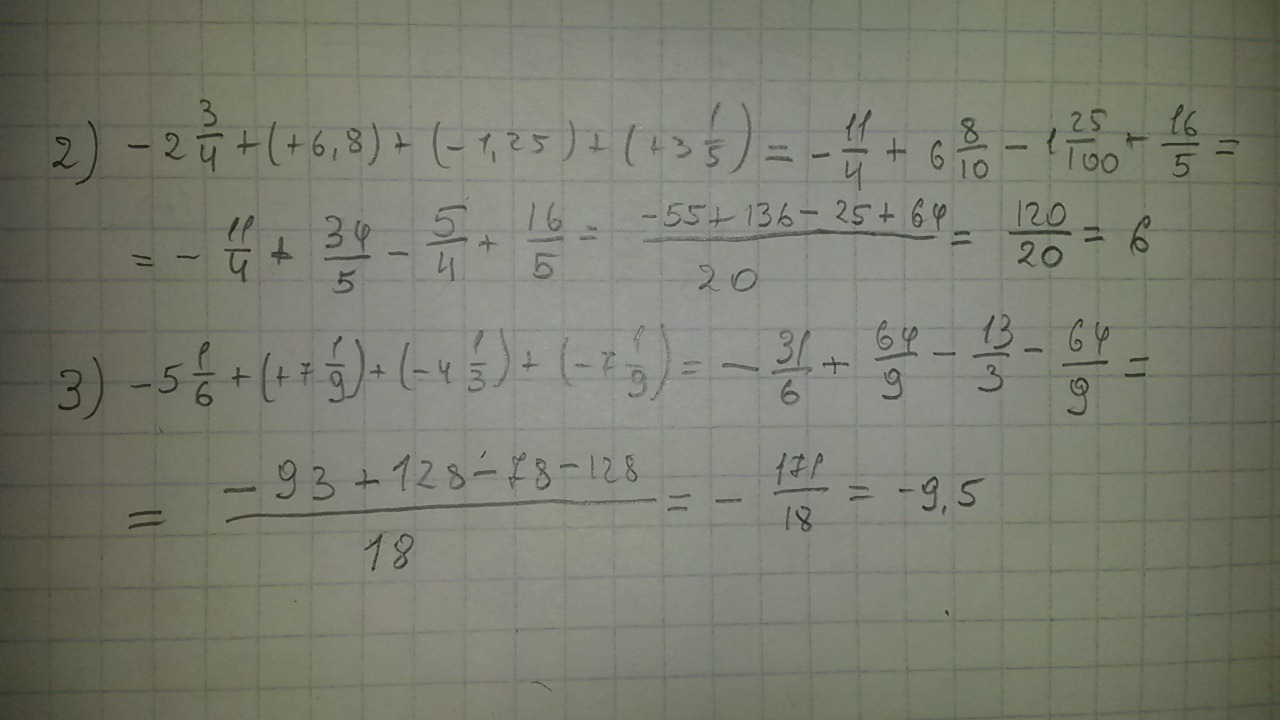 2) -2 3/4 + (+6,8) + (-1,25) + (+3 1/5) = - 11/4 + 6 8/10 - 1 25/100 + 16/5 =
= - 11/4 + 34/5 - 5/4 + 16/5 = (-55 + 136 - 25 + 64)/20 = 120/20 = 6
3) -5 1/6 + (+7 1/9) + (-4 1/3) + (-7 1/9) = - 31/6 + 64/9 - 13/3 - 64/9 =
= (-93 + 128 - 78 - 128)/18 = - 171/18 = -9,5